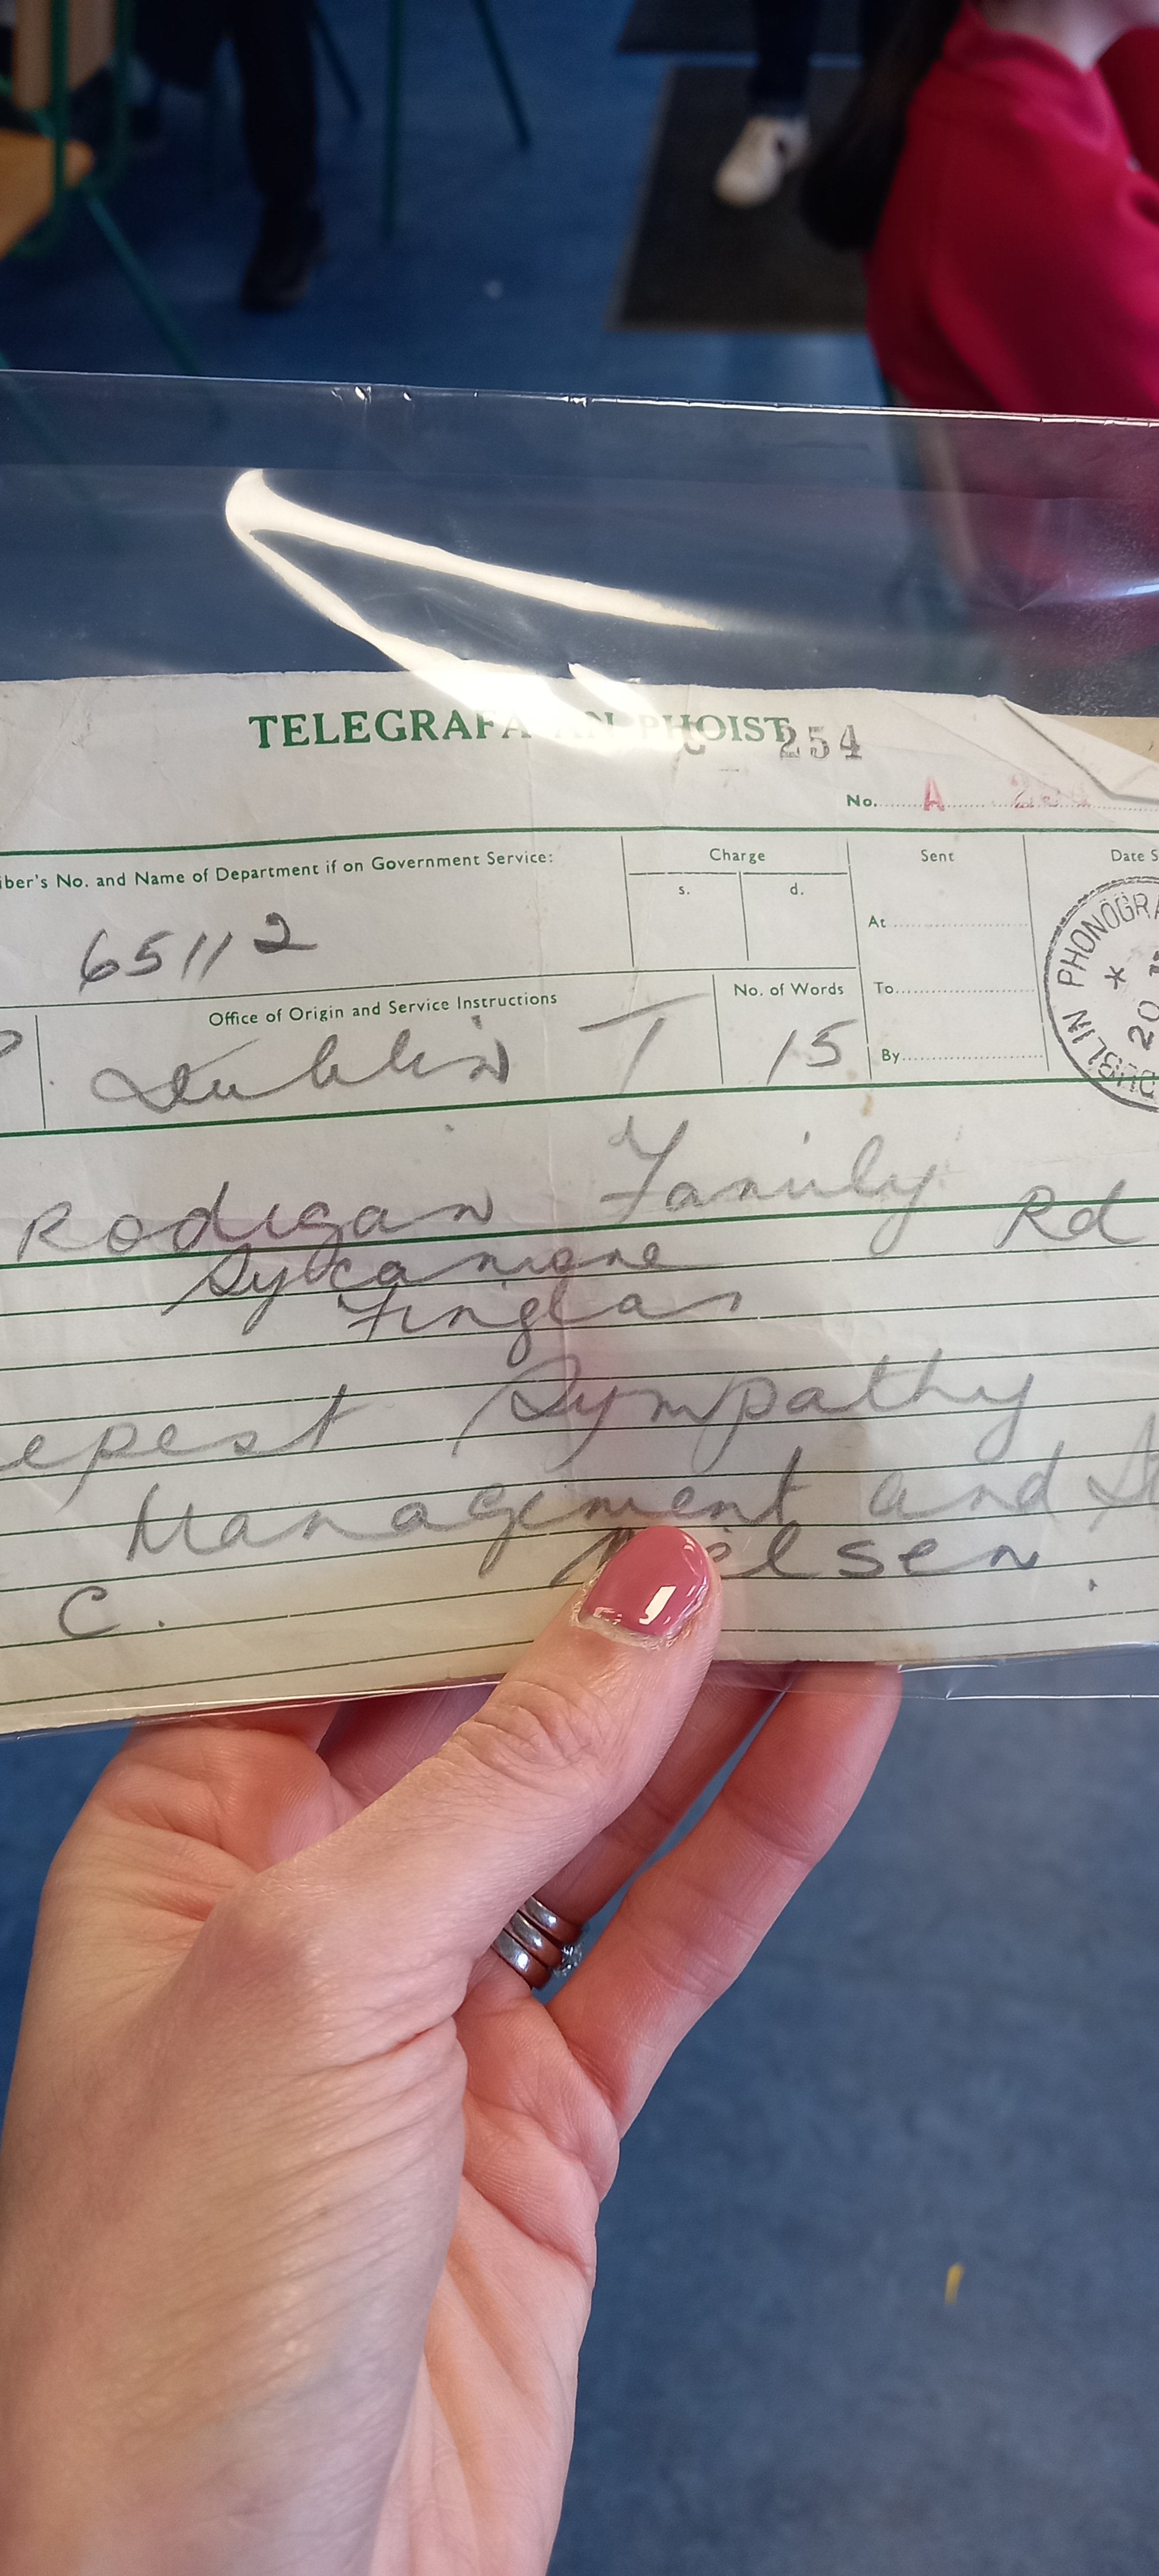 TELEGRAFA AN PHOIST
254
No. A
iber's No. and Name of Department if on Government Service:
Charge
s. d.
Sent
Date S
65112
At
To
By
Office of Origin and Service Instructions
No. of Words
Dublin T 15
DUBLIN PHONOGRA
20
Rodigan Family
Rd
Finglas
epest Sympathy
Management and
C.